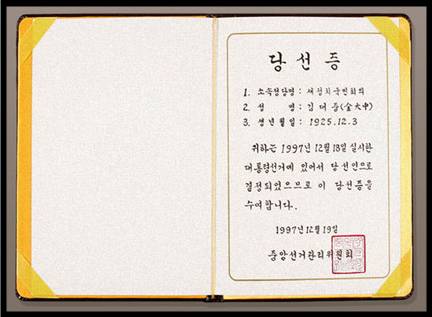 당선증
1. 소속정당명 : 새정치국민회의
2. 성 명 : 김대중(金大中)
3. 생년월일 : 1925.12.3
귀하는 1997년 12월 18일 실시한
대통령선거에 있어서 당선인으로
결정되었으므로 이 당선증을
수여합니다.
1997년 12월 19일
중앙선거관리위원회